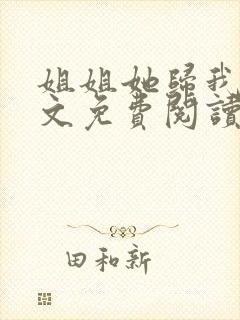 姐姐她歸我
文免費閱讀
田和新